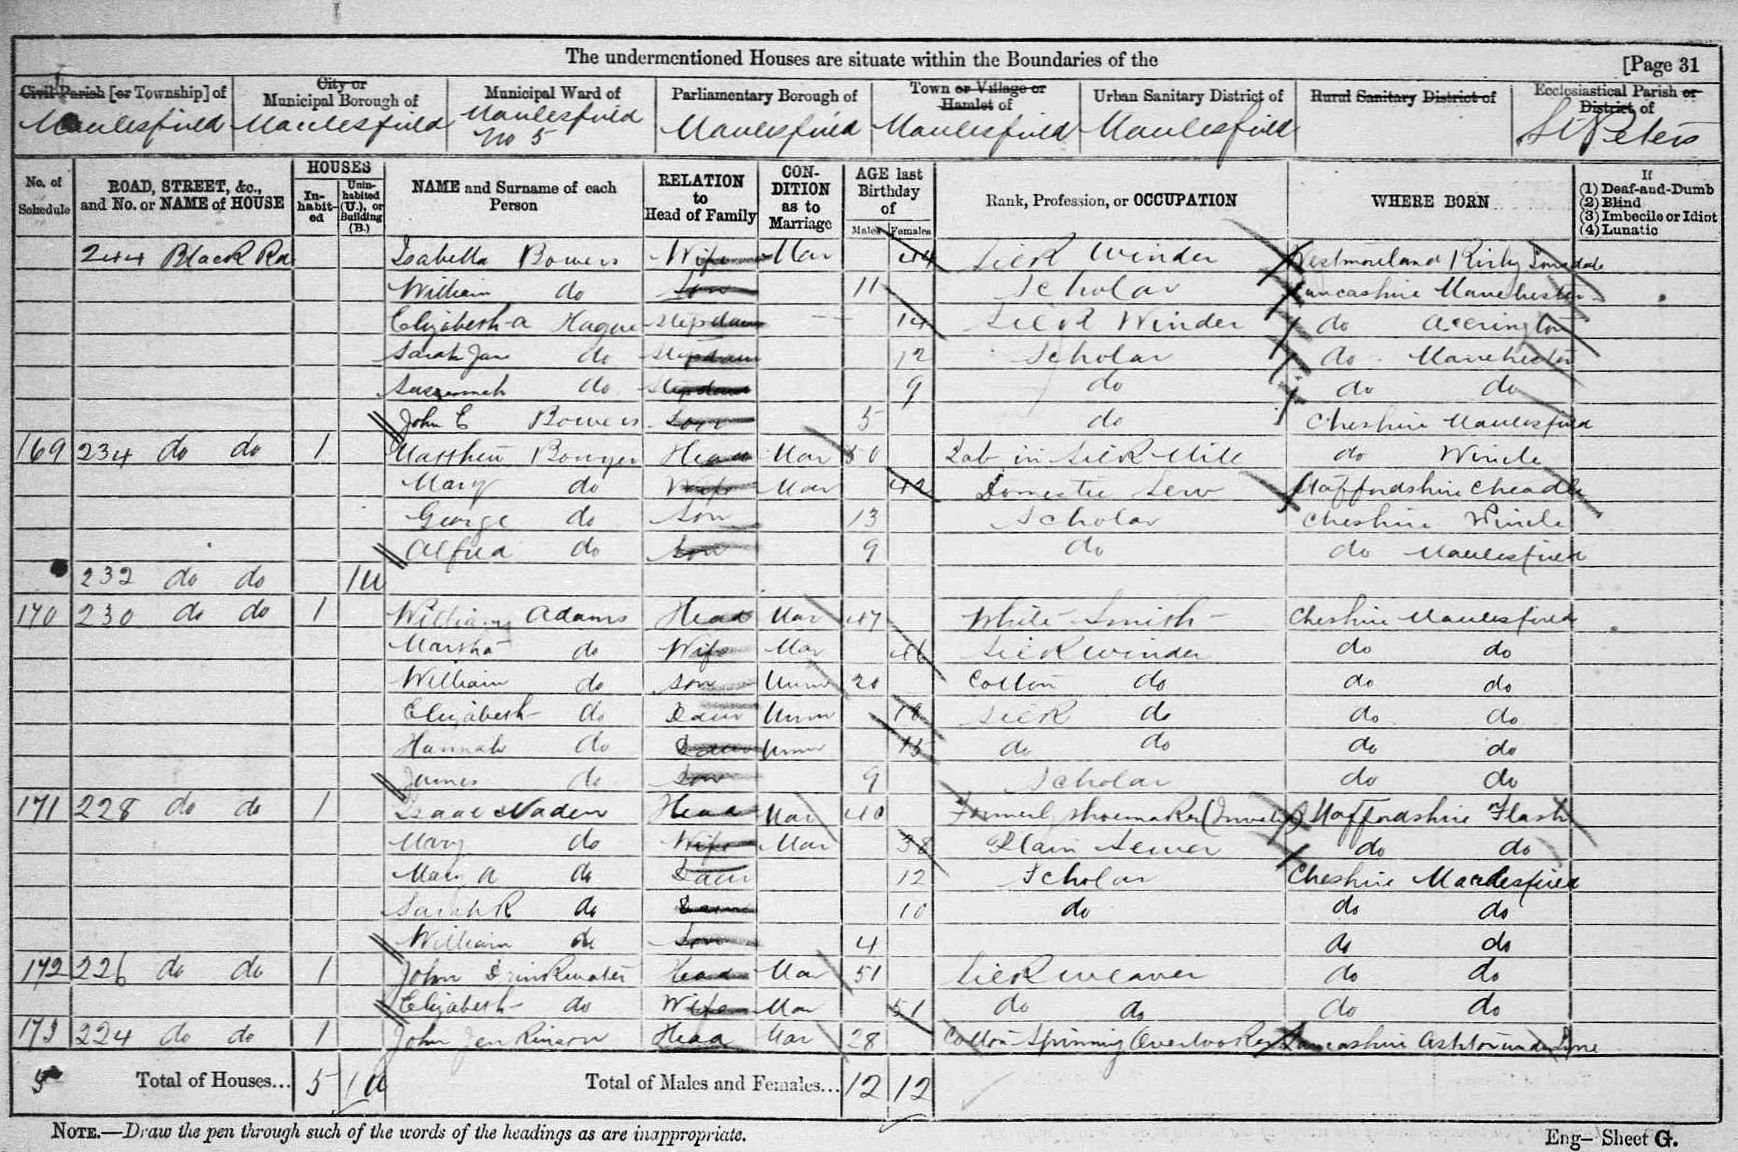 The undermentioned Houses are situate within the Boundaries of the [Page 31
Civil Parish [or Township] of Macclesfield
City or Municipal Borough of Macclesfield
Municipal Ward of Macclesfield No 5
Parliamentary Borough of Macclesfield
Town or Village or Hamlet of Macclesfield
Urban Sanitary District of Macclesfield
Rural Sanitary District of
Ecclesiastical Parish or District of St Peters
No. of Schedule
ROAD, STREET, &c., and No. or NAME of HOUSE
HOUSES
In-habit-ed
Unin-habited (U.), or Building (B.)
NAME and Surname of each Person
RELATION to Head of Family
CON-DITION as to Marriage
AGE last Birthday of
Males Females
Rank, Profession, or OCCUPATION
WHERE BORN
If (1) Deaf-and-Dumb (2) Blind (3) Imbecile or Idiot (4) Lunatic
244 Black Rd Isabella Bowers Wife Mar 44 Silk Winder Westmoreland Kirby Lonsdale
William do Son 11 Scholar Lancashire Manchester
Elizabeth A Hague Stepdaur 14 Silk Winder do Accrington
Sarah Jan do Stepdaur 12 Scholar do Manchester
Susannah do Stepdaur 9 do do do
John E Bowers Son 5 do Cheshire Macclesfield
169 234 do do 1 Matthew Bowyer Head Mar 50 Lab in Silk Mill do Wincle
Mary do Wife Mar 42 Domestic Serv Staffordshire Cheadle
George do Son 13 Scholar Cheshire Wincle
Alfred do Son 9 do do Macclesfield
232 do do 1U
170 230 do do 1 William Adams Head Mar 47 White Smith Cheshire Macclesfield
Martha do Wife Mar 46 Silk winder do do
William do Son Unm 20 Cotton do do do
Elizabeth do Daur Unm Silk do do do
Hannah do Daur Unm 15 do do do do
James do Son 9 Scholar do do
171 228 do do 1 Isaac Naden Head Mar 40 Formerly shoemaker Staffordshire Flash
Mary do Wife Mar 38 Plain Sewer do do
Mary A do Daur 12 Scholar Cheshire Macclesfield
Sarah R do Daur 10 do do do
William do Son 4 do do
172 226 do do 1 John Drinkwater Head Mar 51 Silk weaver do do
Elizabeth do Wife Mar 51 do do do do
173 224 do do 1 John Jenkinson Head Mar 28 Cotton Spinning Overlooker Lancashire Ashton under Lyne
5 Total of Houses... 5 1U Total of Males and Females... 12 12
NOTE.—Draw the pen through such of the words of the headings as are inappropriate.
Eng— Sheet G.